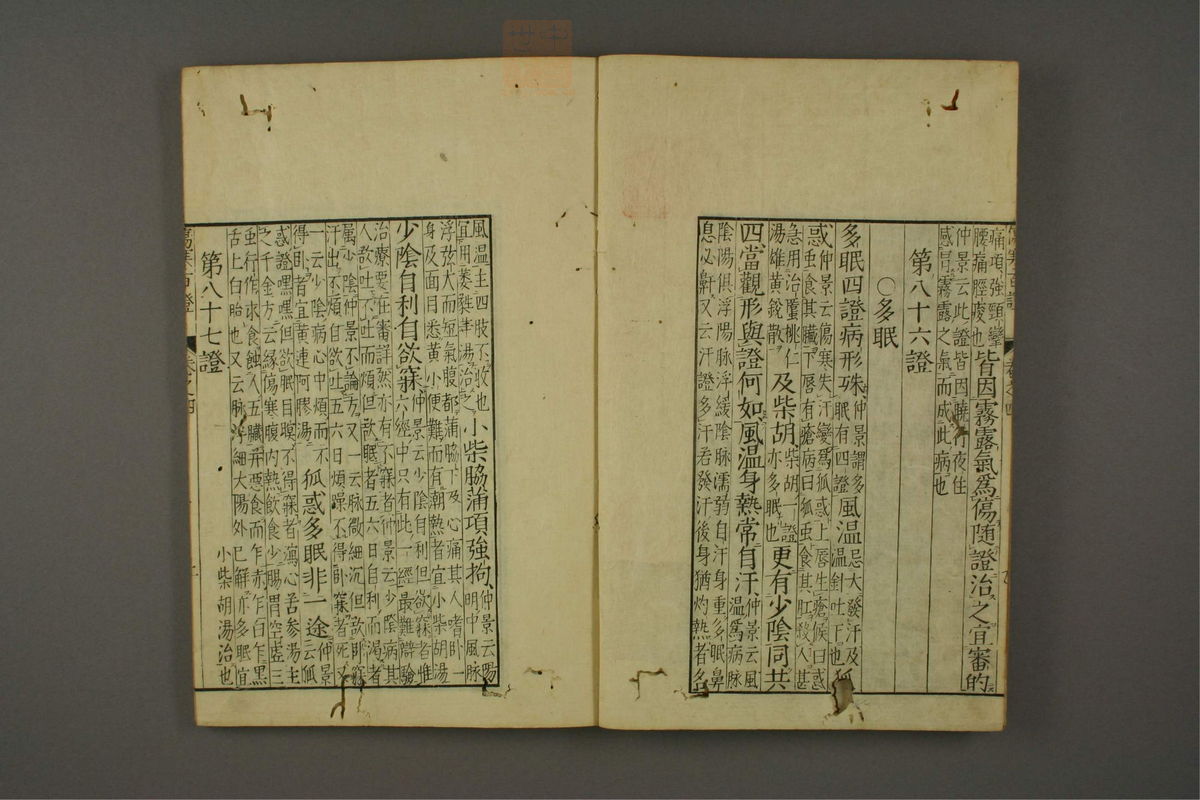 痛項強頸攣
腰痛脛痠也
皆因霧露氣爲傷隨證治之宜審的
仲景云此證皆因曉行夜住
感冒霧露之氣而成此病也
第八十六證
○多眠
多眠四證病形殊
仲景謂多
眠有四證
風溫
忌大發汗及
溫針吐下也
狐
惑
仲景云傷寒失汗變爲狐惑上唇生瘡候曰惑
虫食其臟下唇有瘡病曰狐虫食其肛殺人甚
急用治䘌桃仁
湯雄黃銳散
及柴胡
柴胡一證
亦多眠也
更有少陰同共
四當觀形與證何如風溫身熱常自汗
仲景云風
溫爲病脉
陰陽俱浮陽脉浮緩陰脉濡弱自汗身重多眠鼻
息必鼾又云汗證多汗若發汗後身猶灼熱者名
風溫主四肢不收也
宜用葳蕤湯治之
小柴脇滿項強拘
仲景云陽
明中風脉
浮弦大而短氣腹都滿脇下及心痛其人嗜卧一
身及面目悉黃小便難而有潮熱者宜小柴胡湯
少陰自利自欲寐
仲景云少陰自利但欲寐者惟
六經中只有此一經最難辯驗
治療要在審詳然亦有不寐者仲景云少陰病其
人欲吐不吐而煩但欲眠者五六日自利而渴者
屬少陰仲景不論方又一云脉微細沉但欲卧
汗出不煩自欲吐五六日煩躁不得卧寐者死又
一云少陰病心中煩而不
得卧者宜黃連阿膠湯
狐惑多眠非一途
仲景
云狐
惑證嘿嘿但欲眠目瞑不得寐者瀉心苦參湯主
之千金方云緣傷寒腹內熱飲食少腸胃空虛三
虫行作求食蝕人五臟并惡食而乍赤乍白乍黑
舌上白胎也又云脉浮細太陽外已解亦多眠宜
小柴胡湯治也
第八十七證
卷之四